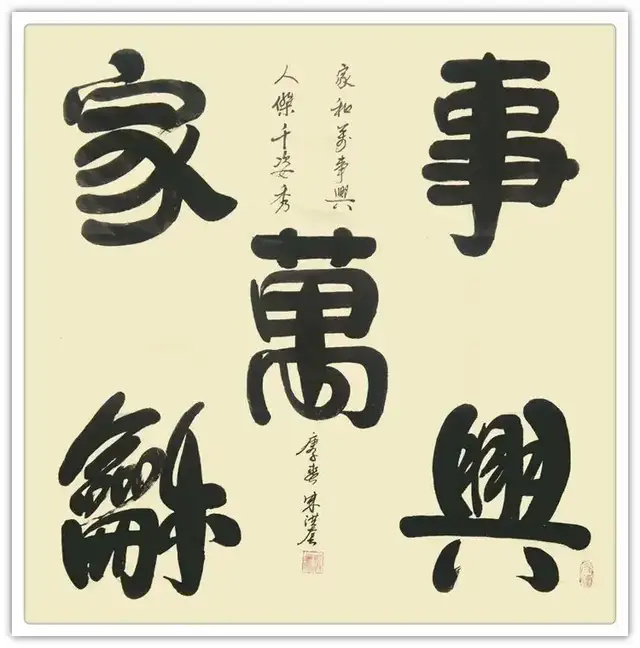 家
龢
萬
事
興
家和萬事興
人傑千姿秀